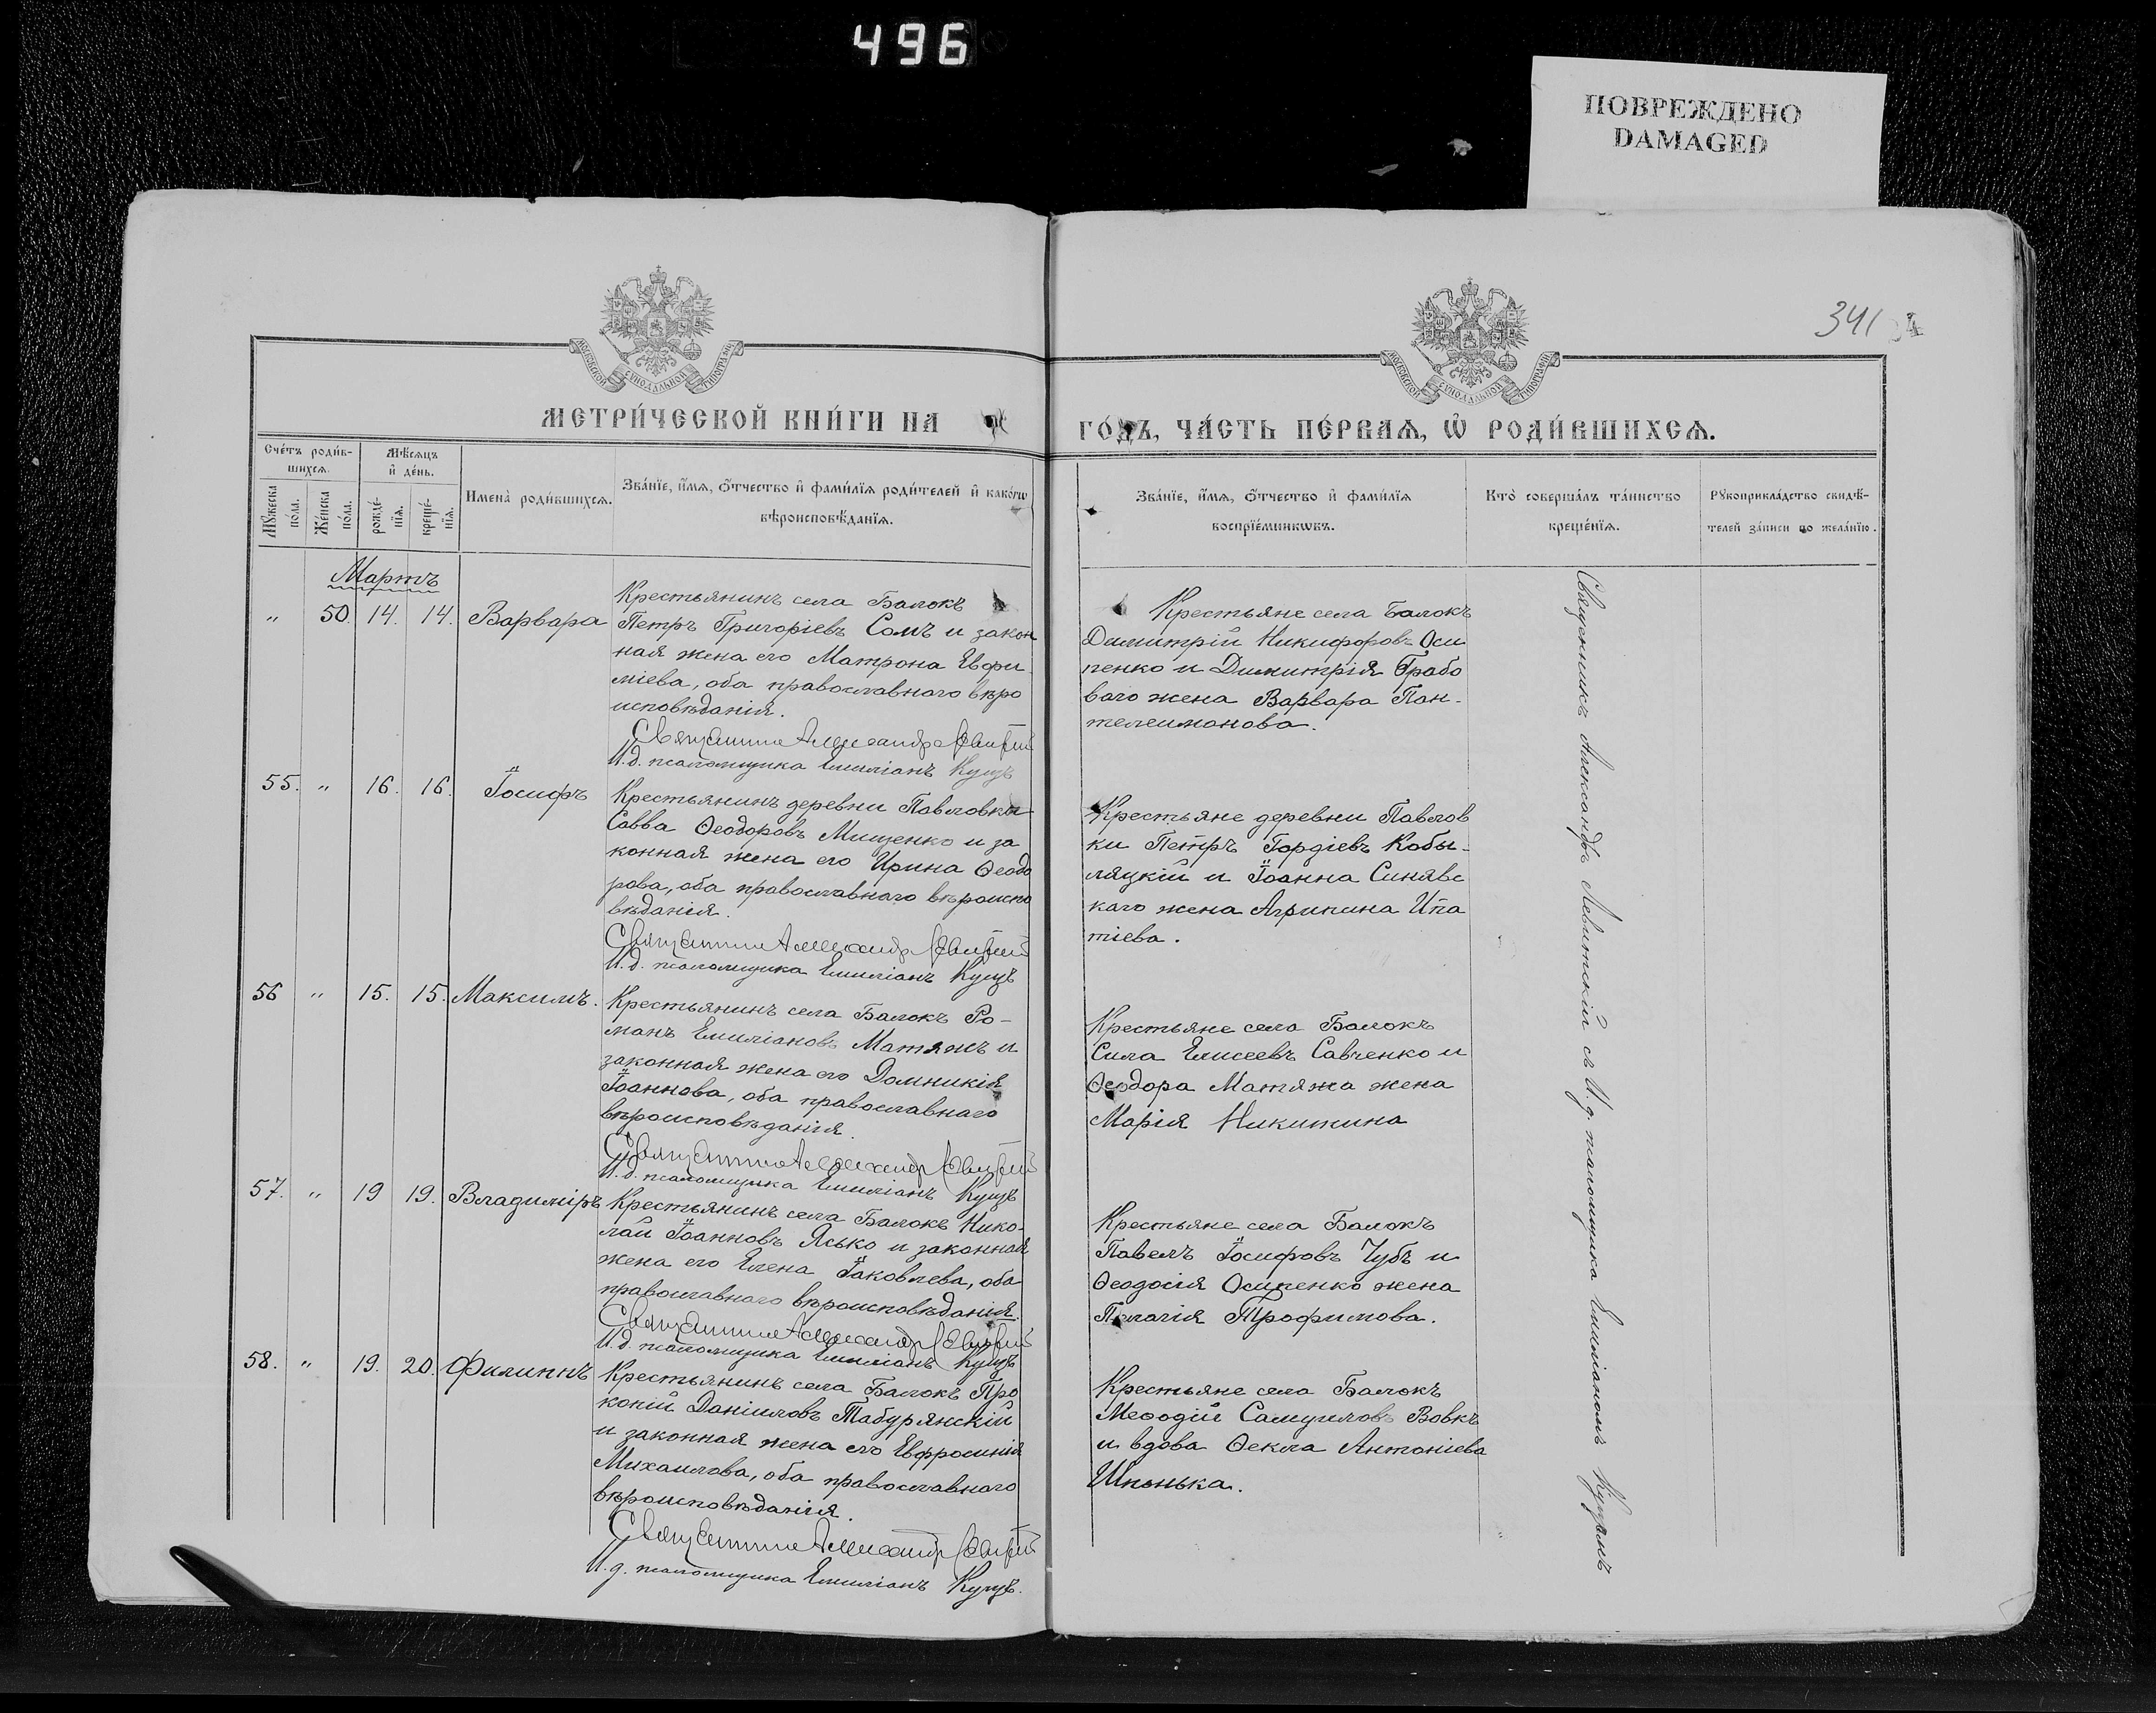 496
ПОВРЕЖДЕНО
DAMAGED
341
МОСКОВСКОЙ СѴНОДАЛЬНОЙ ТИПОГРАФІИ
МОСКОВСКОЙ СѴНОДАЛЬНОЙ ТИПОГРАФІИ
МЕТРИ́ЧЕСКОЙ КНИ́ГИ НА
ГО́ДЪ, ЧА́СТЬ ПЕ́РВАѦ, Ѡ҆ РОДИ́ВШИХСѦ.
Сче́тъ роди́в-
шихсѧ.
Мѣ́сѧцъ
и҆ де́нь.
Мꙋ́жеска
по́ла.
Же́нска
по́ла.
рожде́-
нїѧ.
креще́-
нїѧ.
Имена̀ роди́вшихсѧ.
Зва́нїе, и҆́мѧ, ѻ҆́тчество и҆ фами́лїѧ роди́телей и҆ како́гѡ
вѣроисповѣ́данїѧ.
Зва́нїе, и҆́мѧ, ѻ҆́тчество и҆ фами́лїѧ
воспрїе́мникѡвъ.
Кто̀ соверша́лъ та́инство
креще́нїѧ.
Рꙋкоприкла́дство свидѣ́-
телей за́писи по жела́нїю.
Мартъ
„ 50. 14. 14. Варвара
Крестьянинъ села Балокъ
Петръ Григоріевъ Сомъ и закон
ная жена его Матрона Евфи
міева, оба православнаго вѣро
исповѣданія.
Священникъ Александр Левитскій
И.д. псаломщика Емиліанъ Куцъ
Крестьяне села Балокъ
Димитрій Никифоровъ Оси
пенко и Димитрія Грабо
ваго жена Варвара Пан-
телеимонова.
55. „ 16. 16. Іосифъ
Крестьянинъ деревни Павловки
Савва Ѳеодоровъ Мищенко и за
конная жена его Ирина Ѳеодо
рова, оба православнаго вѣроиспо
вѣданія.
Священникъ Александр Левитскій
И.д. псаломщика Емиліанъ Куцъ
Крестьяне деревни Павлов
ки Петръ Гордіевъ Кобы-
ляцкій и Іоанна Синявс
каго жена Агрипина Ипа
тіева.
56 „ 15. 15. Максимъ.
Крестьянинъ села Балокъ Ро-
манъ Емиліановъ Матяжъ и
законная жена его Домникія
Іоаннова, оба православнаго
вѣроисповѣданія.
Священникъ Александр Левитскій
И.д. псаломщика Емиліанъ Куцъ
Крестьяне села Балокъ
Сила Елисеевъ Савченко и
Ѳеодора Матяжа жена
Марія Никитина
57. „ 19 19. Владиміръ
Крестьянинъ села Балокъ Нико-
лай Іоанновъ Ясько и законная
жена его Елена Іаковлева, оба
православнаго вѣроисповѣданія.
Священникъ Александр Левитскій
И.д. псаломщика Емиліанъ Куцъ
Крестьяне села Балокъ
Павелъ Іосифовъ Чубъ и
Ѳеодосія Осипенко жена
Пелагія Трофимова.
58. „ 19. 20. Филиппъ
Крестьянинъ села Балокъ Про
копій Даніиловъ Табурянскій
и законная жена его Евфросинія
Михаилова, оба православнаго
вѣроисповѣданія.
Священникъ Александр Левитскій
И.д. псаломщика Емиліанъ Куцъ.
Крестьяне села Балокъ
Меѳодій Самуиловъ Вовкъ
и вдова Ѳекла Антоніева
Шпонька.
Священникъ Александръ Левитскій съ И.д. псаломщика Емиліаномъ Куцомъ